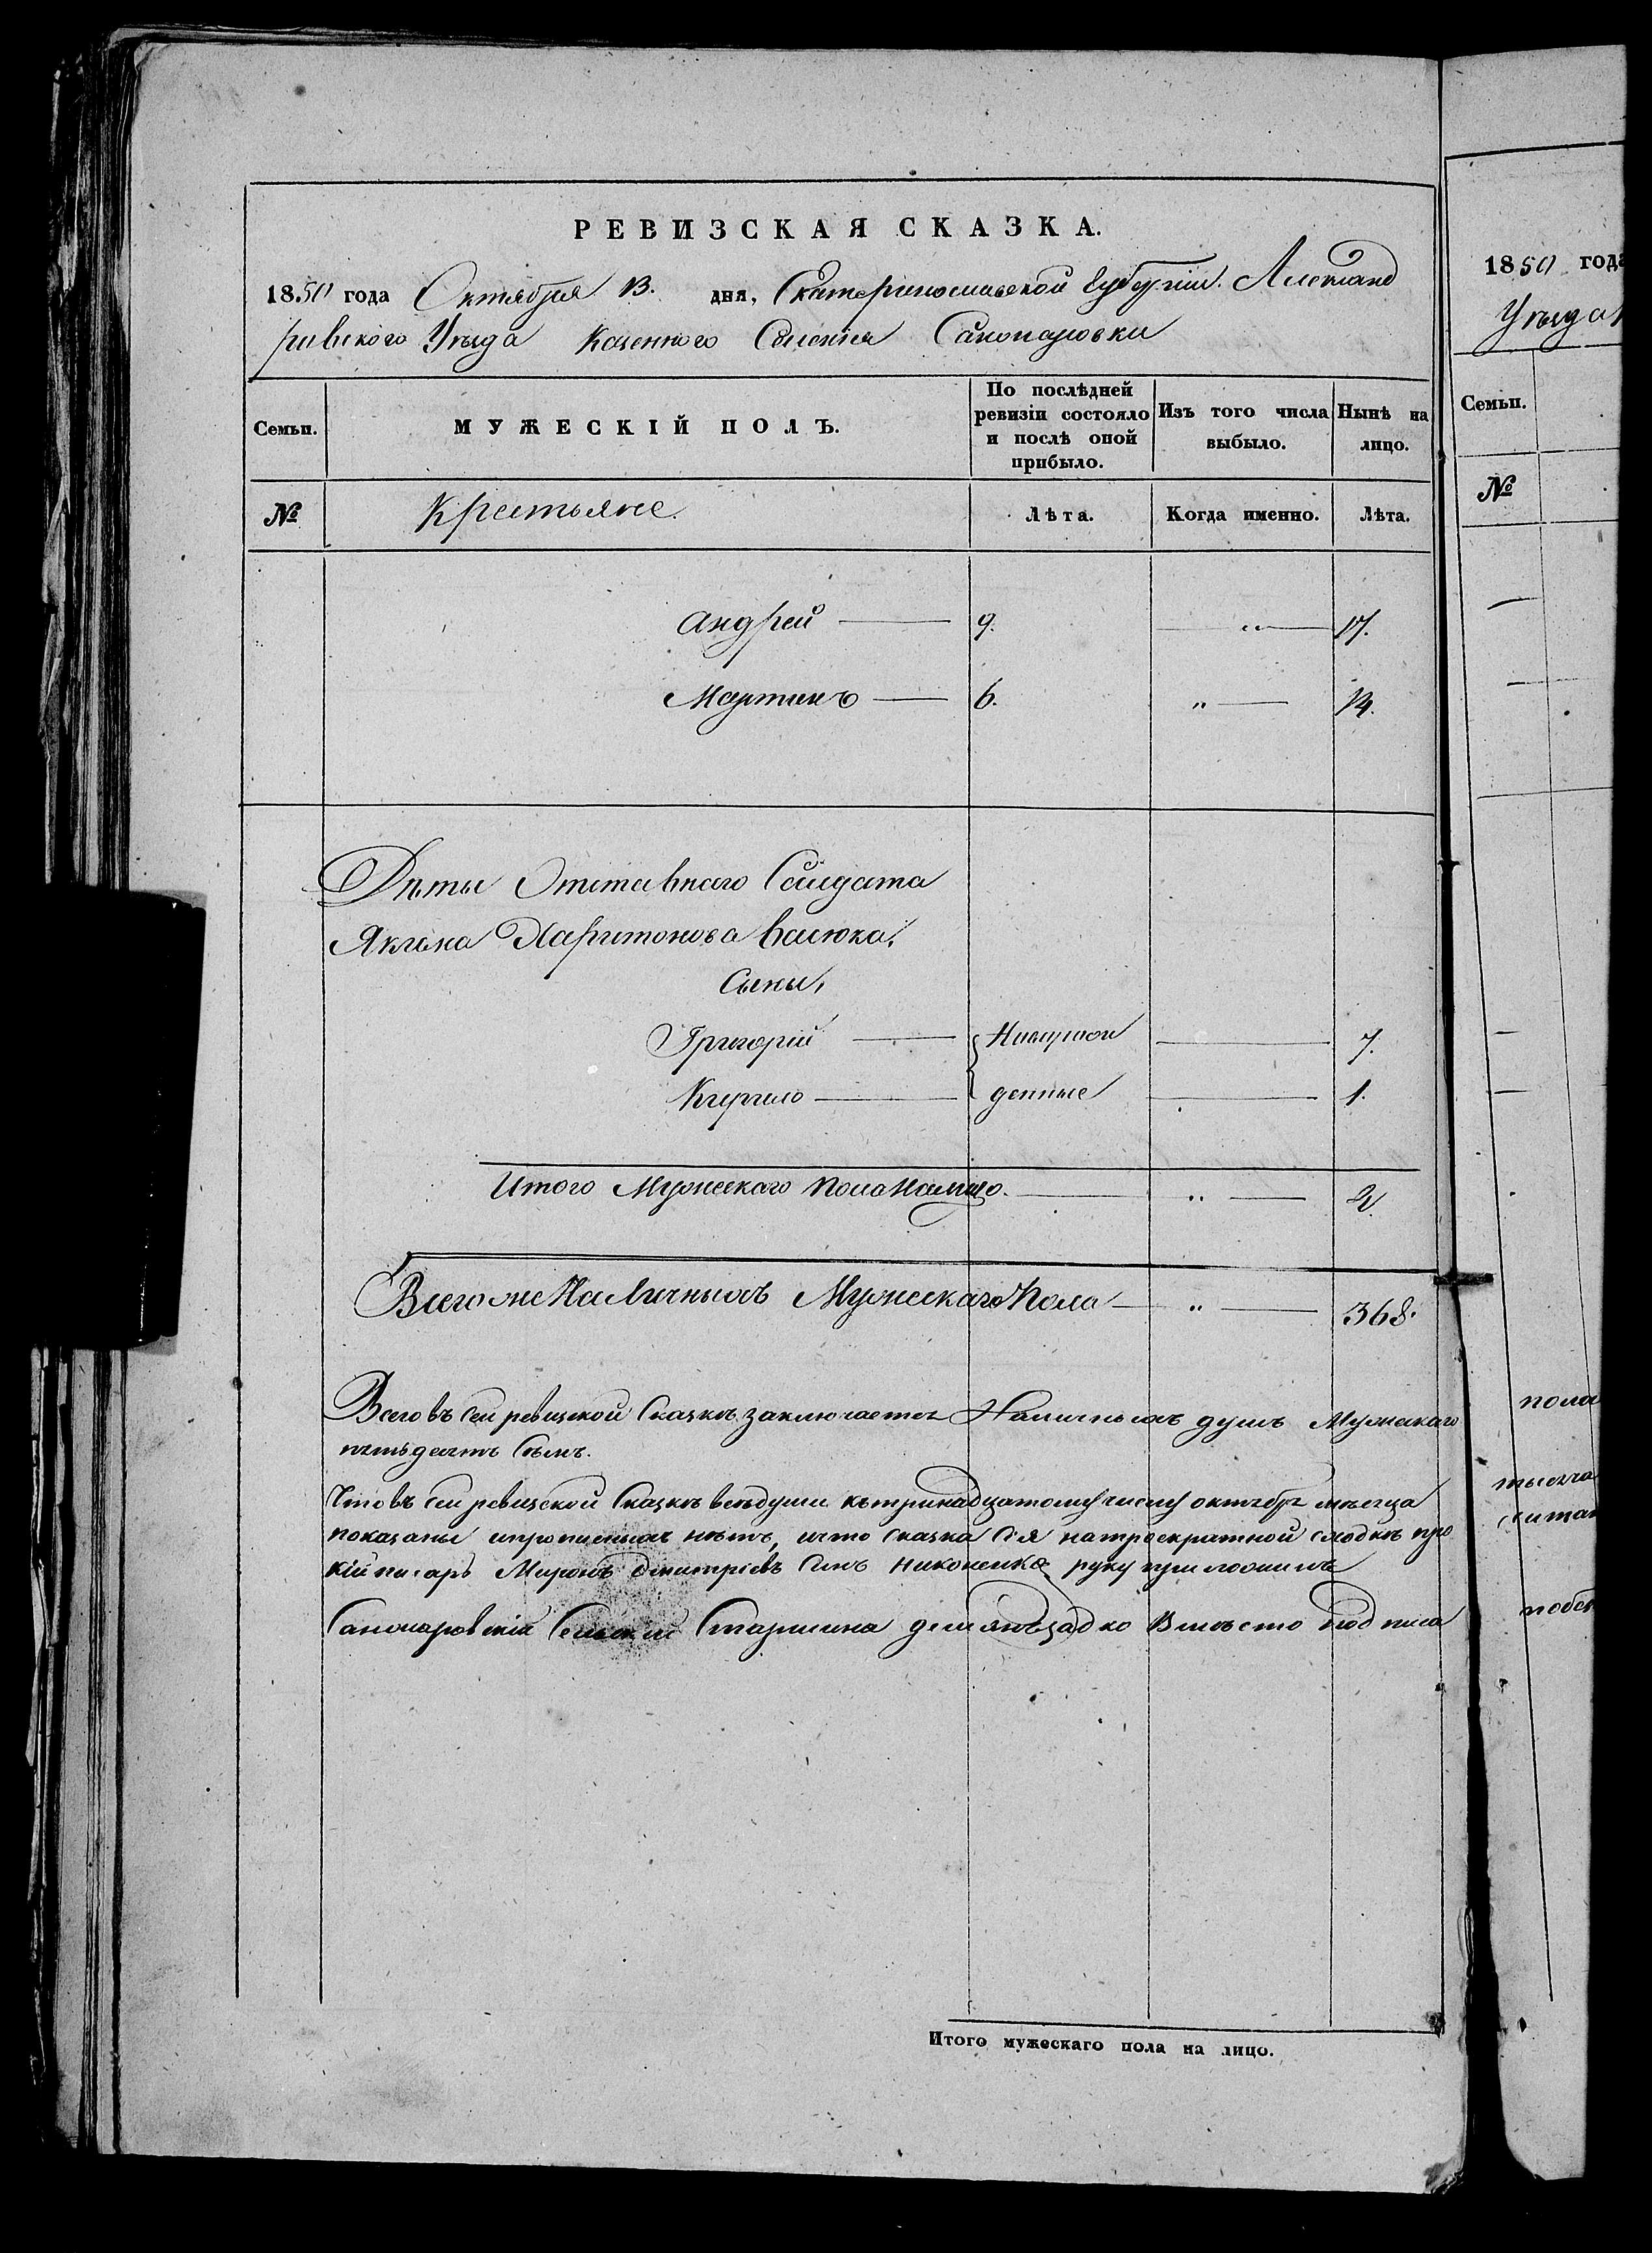 РЕВИЗСКАЯ СКАЗКА.
1850 года Октября 13. дня, Екатеринославской Губерніи. Александ
ривского Уѣзда Казенного Селенія
Семьи.
МУЖЕСКІЙ ПОЛЪ.
По послѣдней ревизіи состояло и послѣ оной прибыло.
Изъ того числа выбыло.
Нынѣ на лицо.
№
Крестьяне.
Лѣта.
Когда именно.
Лѣта.
Андрей — 9. — " — 17.
Мартинъ — 6. " — 14.
Дѣты Отставного Солдата
Якима Харитонова Васюка,
Сыны,
Григорій — Новорож — 7.
Кирило — денные — 1.
Итого Мужескаго пола Налицо. — " — 2.
Всего же Наличныхъ Мужескаго Пола — " — 368.
Всего въ сей ревизской Сказкѣ заключается Наличныхъ душъ Мужескаго
пятьдесятъ
Что въ сей ревизской Сказкѣ всѣ души къ тринадцатому числу октября мѣсяца
показаны и прописныхъ нѣтъ, и что сказка сія на троекратной сходкѣ про
кій писарь Миронъ Дмитріевъ Сынъ Никоненко руку приложилъ
Сельскій Старшина Вмѣсто подписа
Итого мужескаго пола на лицо.
1850 года
Уѣзда
Семьи.
№
пола
тысяча